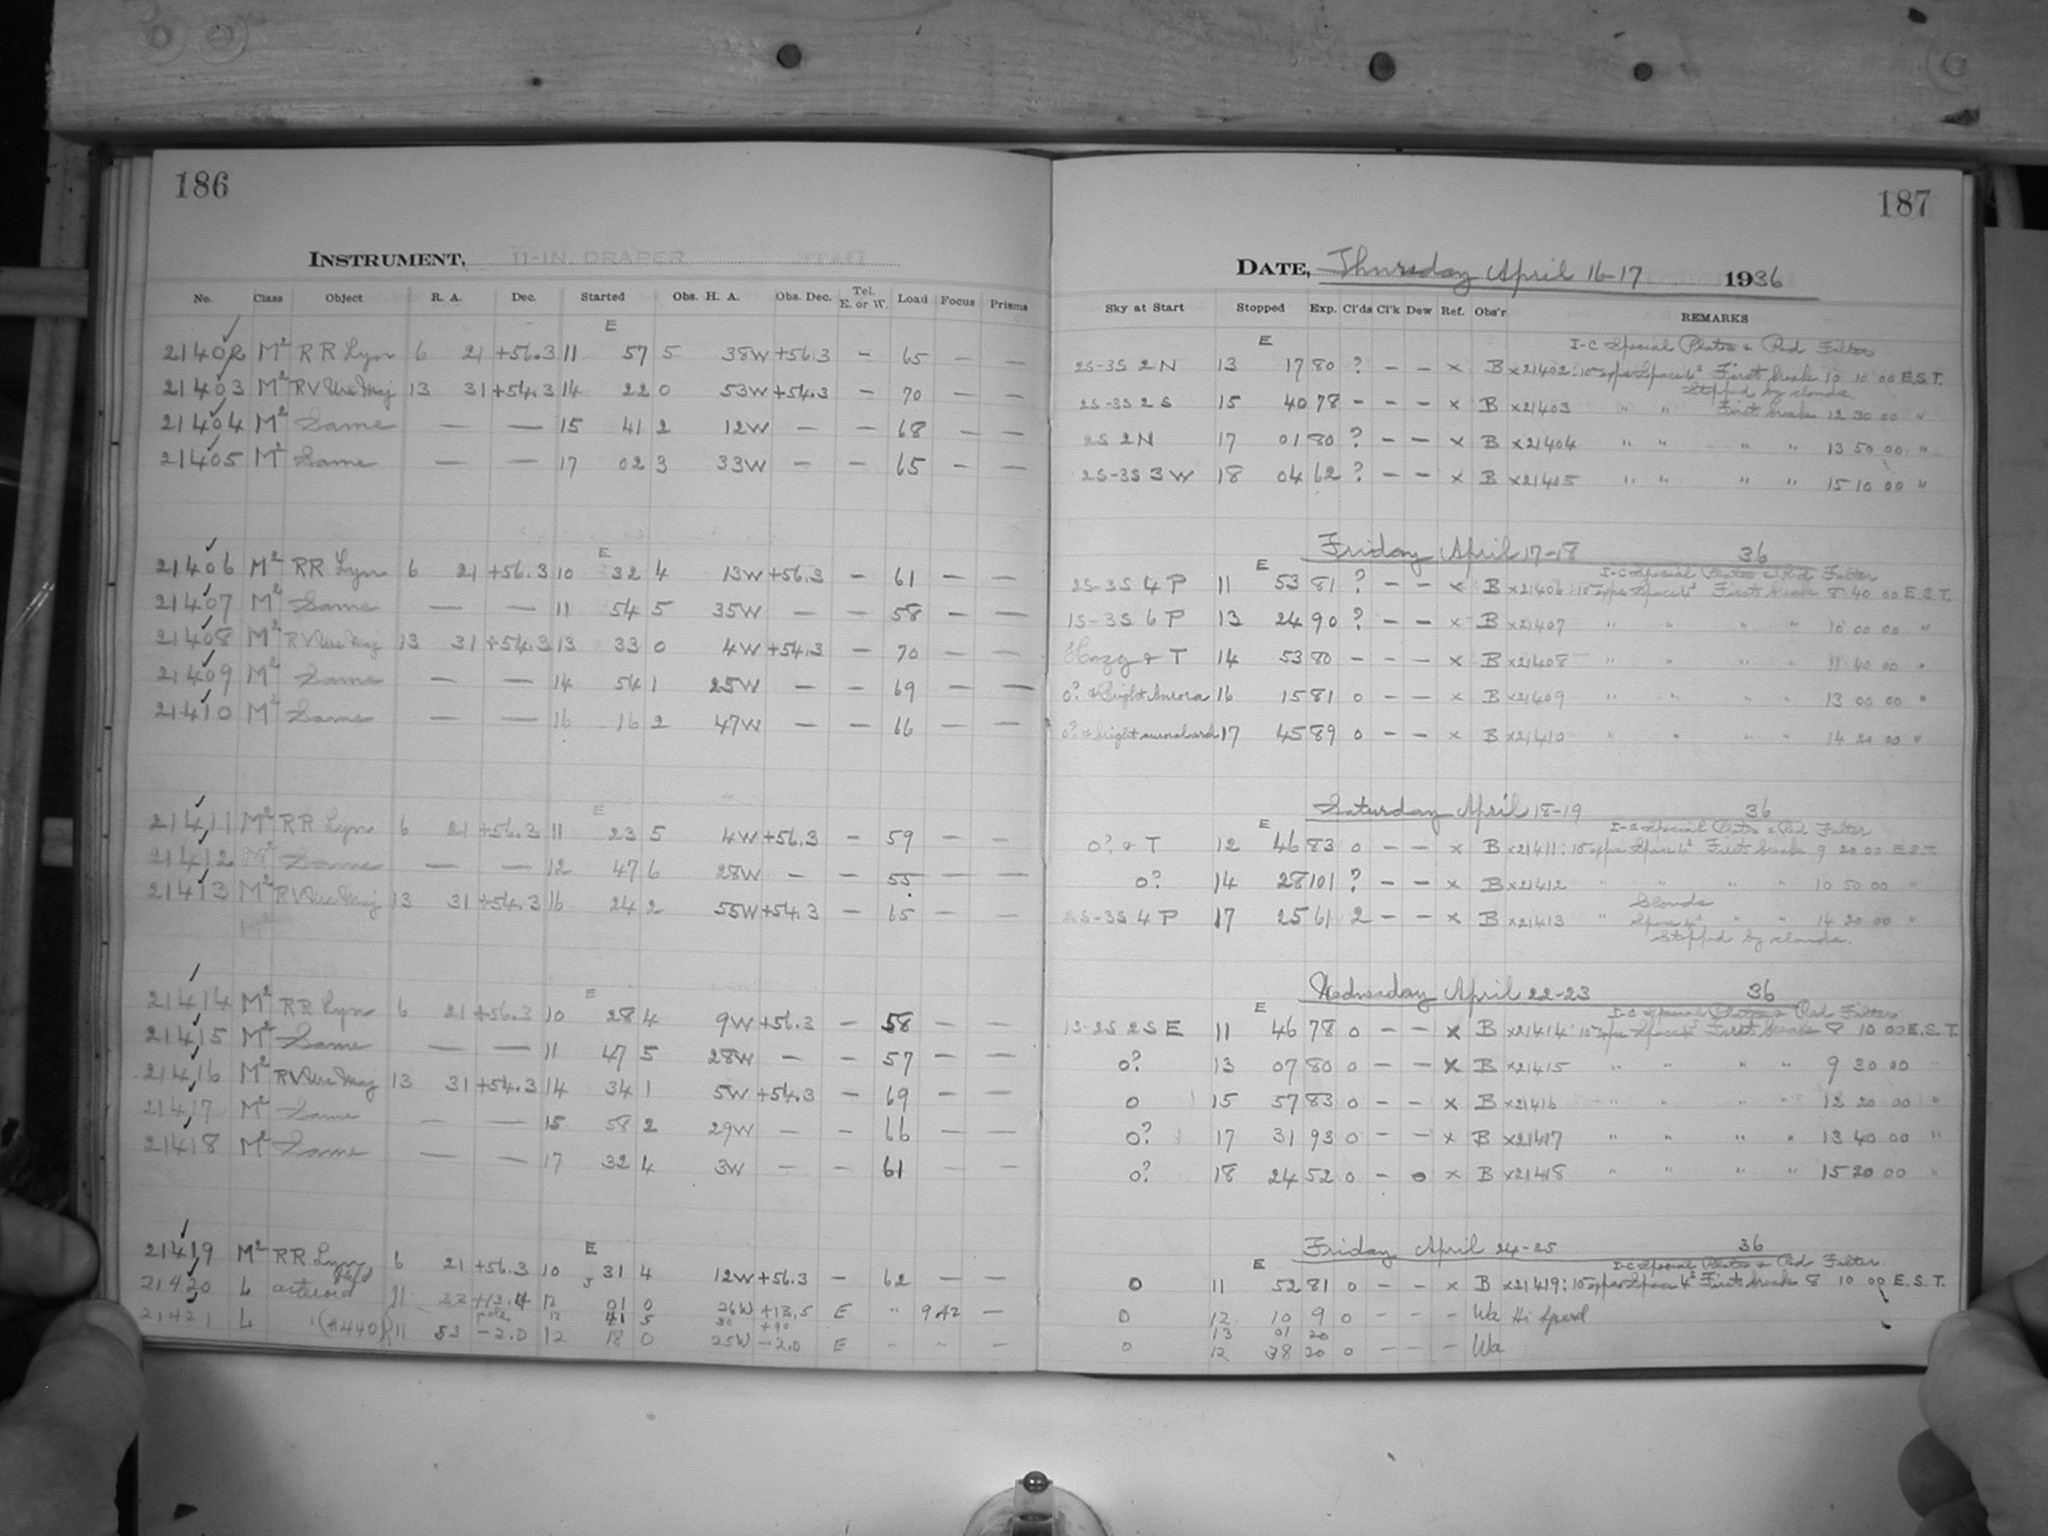 186
INSTRUMENT, 11-IN. DRAPER
No. Class Object R. A. Dec. Started Obs. H. A. Obs. Dec. Tel. E. or W. Load Focus Prisms
E
21402 M² RR Lyn 6 21 +56.3 11 57 5 38W +56.3 – 65 – –
21403 M² RV Urs Maj 13 31 +54.3 14 22 0 53W +54.3 – 70 – –
21404 M² Same — — 15 41 2 12W – – 68 – –
21405 M² Same — — 17 02 3 33W – – 65 – –
E
21406 M² RR Lyn 6 21 +56.3 10 32 4 13W +56.3 – 61 – –
21407 M² Same — — 11 54 5 35W – – 58 – –
21408 M² RV Urs Maj 13 31 +54.3 13 33 0 4W +54.3 – 70 – –
21409 M² Same — — 14 54 1 25W – – 69 – –
21410 M² Same — — 16 16 2 47W – – 66 – –
E
21411 M² RR Lyn 6 21 +56.3 11 23 5 4W +56.3 – 59 – –
21412 M² Same — — 12 47 6 28W – – 55 – –
21413 M² RV Urs Maj 13 31 +54.3 16 24 2 55W +54.3 – 65 – –
E
21414 M² RR Lyn 6 21 +56.3 10 28 4 9W +56.3 – 58 – –
21415 M² Same — — 11 47 5 28W – – 57 – –
21416 M² RV Urs Maj 13 31 +54.3 14 34 1 5W +54.3 – 69 – –
21417 M² Same — — 15 58 2 29W – – 66 – –
21418 M² Same — — 17 32 4 3W – – 61 – –
E
21419 M² RR Lyn 6 21 +56.3 10 31 4 12W +56.3 – 62 – –
21420 L asteroid 11 22 +13.4 12 01 0 26W +13.5 E " 9.42 –
pole 12 41 5 30 +90
21421 L " (A440) 11 53 -2.0 12 18 0 25W -2.0 E " " –
187
DATE, Thursday April 16-17 1936
Sky at Start Stopped Exp. Cl'ds Cl'k Dew Ref. Obs'r REMARKS
E I-C Special Plates & Red Filter
2S-3S 2 N 13 17 80 ? – – x B x21402: 10ᵐ exps Space 4ˢ First break 10 10 00 E.S.T.
Stopped by clouds
2S-3S 2 S 15 40 78 – – – x B x21403 " " First break 12 30 00 "
2S 2N 17 01 80 ? – – x B x21404 " " " " 13 50 00 "
2S-3S 3 W 18 04 62 ? – – x B x21405 " " " " 15 10 00 "
Friday April 17-18 36
E I-C Special Plates & Red Filter
2S-3S 4 P 11 53 81 ? – – x B x21406: 10ᵐ exps Space 4ˢ First break 8 40 00 E.S.T.
1S-3S 6 P 13 24 90 ? – – x B x21407 " " " " 10 00 00 "
Hazy & T 14 53 80 – – – x B x21408 " " " " 11 40 00 "
0? & Bright Aurora 16 15 81 0 – – x B x21409 " " " " 13 00 00 "
0? & bright auroral arch 17 45 89 0 – – x B x21410 " " " " 14 20 00 "
Saturday April 18-19 36
E I-C Special Plates & Red Filter
0? & T 12 46 83 0 – – x B x21411: 10ᵐ exps Space 4ˢ First break 9 20 00 E.S.T.
0? 14 28 101 ? – – x B x21412 " " " " 10 50 00 "
Clouds
2S-3S 4 P 17 25 61 2 – – x B x21413 " Space 4ˢ " " 14 20 00 "
Stopped by clouds.
Wednesday April 22-23 36
E I-C Special Plates & Red Filter
1S-2S 2 S E 11 46 78 0 – – x B x21414: 10ᵐ exps Space 4ˢ First break 8 10 00 E.S.T.
0? 13 07 80 0 – – x B x21415 " " " " 9 30 00 "
0 15 57 83 0 – – x B x21416 " " " " 12 20 00 "
0? 17 31 93 0 – – x B x21417 " " " " 13 40 00 "
0? 18 24 52 0 – 0 x B x21418 " " " " 15 20 00 "
Friday April 24-25 36
E I-C Special Plates & Red Filter.
0 11 52 81 0 – – x B x21419: 10ᵐ exps Space 4ˢ First break 8 10 00 E.S.T.
0 12 10 9 0 – – – Wa Hi Speed
13 01 20
0 12 38 20 0 – – – Wa